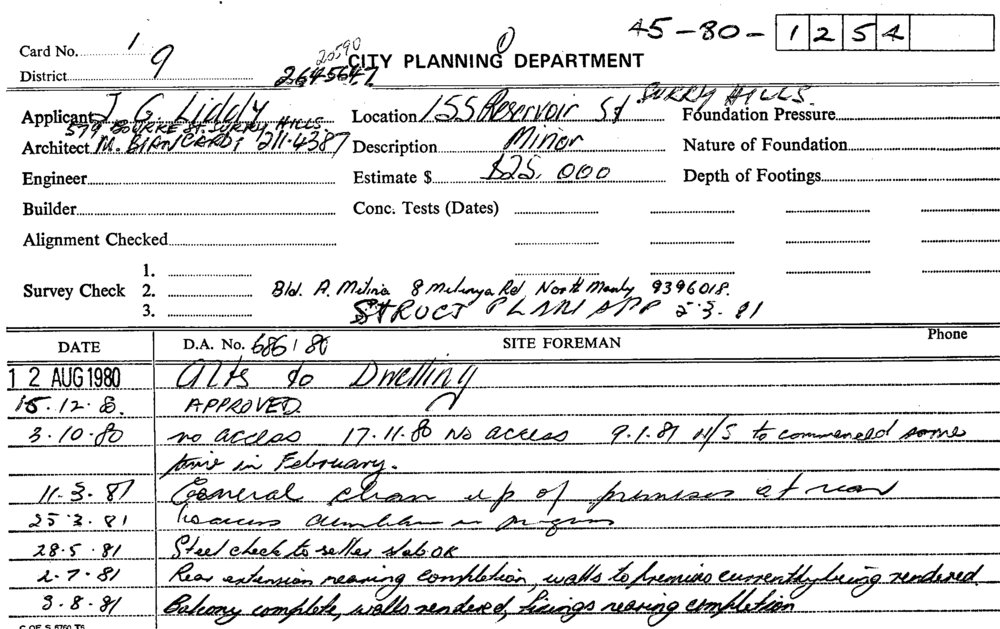 45-80- 1254
Card No. 1
20590
CITY PLANNING DEPARTMENT
District 9
2645647
Applicant J G Liddy Location 155 Reservoir St SURRY HILLS. Foundation Pressure
579 BOURKE St. SURRY HILLS
Architect M. BIANCARDI 211.4387 Description Minor Nature of Foundation
Engineer Estimate $ $25,000 Depth of Footings
Builder Conc. Tests (Dates)
Alignment Checked
1.
Survey Check 2. Bld. A. Rd North Manly 9396018.
3. STRUCT PLAN APP 2.3.81
DATE D.A. No. 686/80 SITE FOREMAN Phone
12 AUG 1980 Alts to Dwelling
15.12.8. APPROVED
3.10.80 no access 17.11.80 No access 9.1.81 N/S to commenced some
time in February.
11.3.81 General clean up of premises at rear
25.3.81 in progress
28.5.81 Steel check to slab OK
2.7.81 Rear extension nearing completion, walls to premises currently being rendered
3.8.81 Balcony complete, walls rendered, fixings nearing completion
C OF S 5760 T5